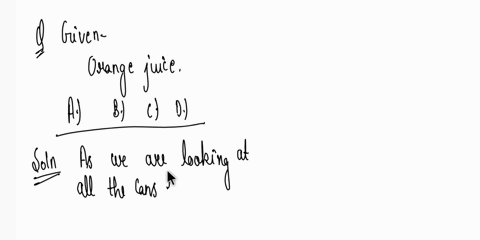 Q Given-
Orange juice.
A.) B.) C.) D.)
Soln As we are looking at
all the cans